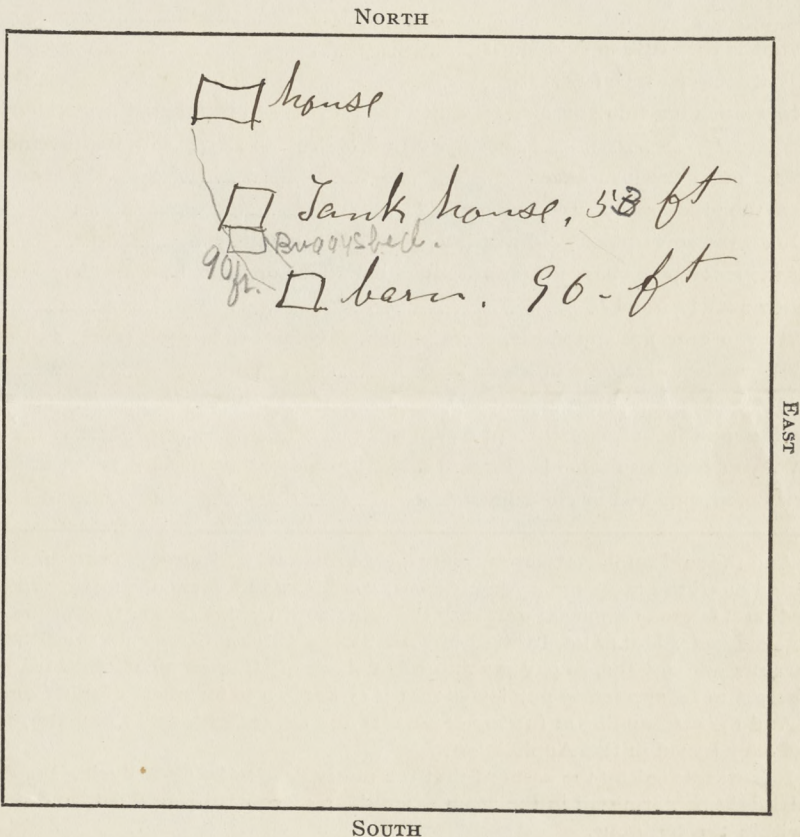 NORTH
house
Tank house, 58 ft
Buggyshed.
90 ft.
barn. 90 - ft
EAST
SOUTH